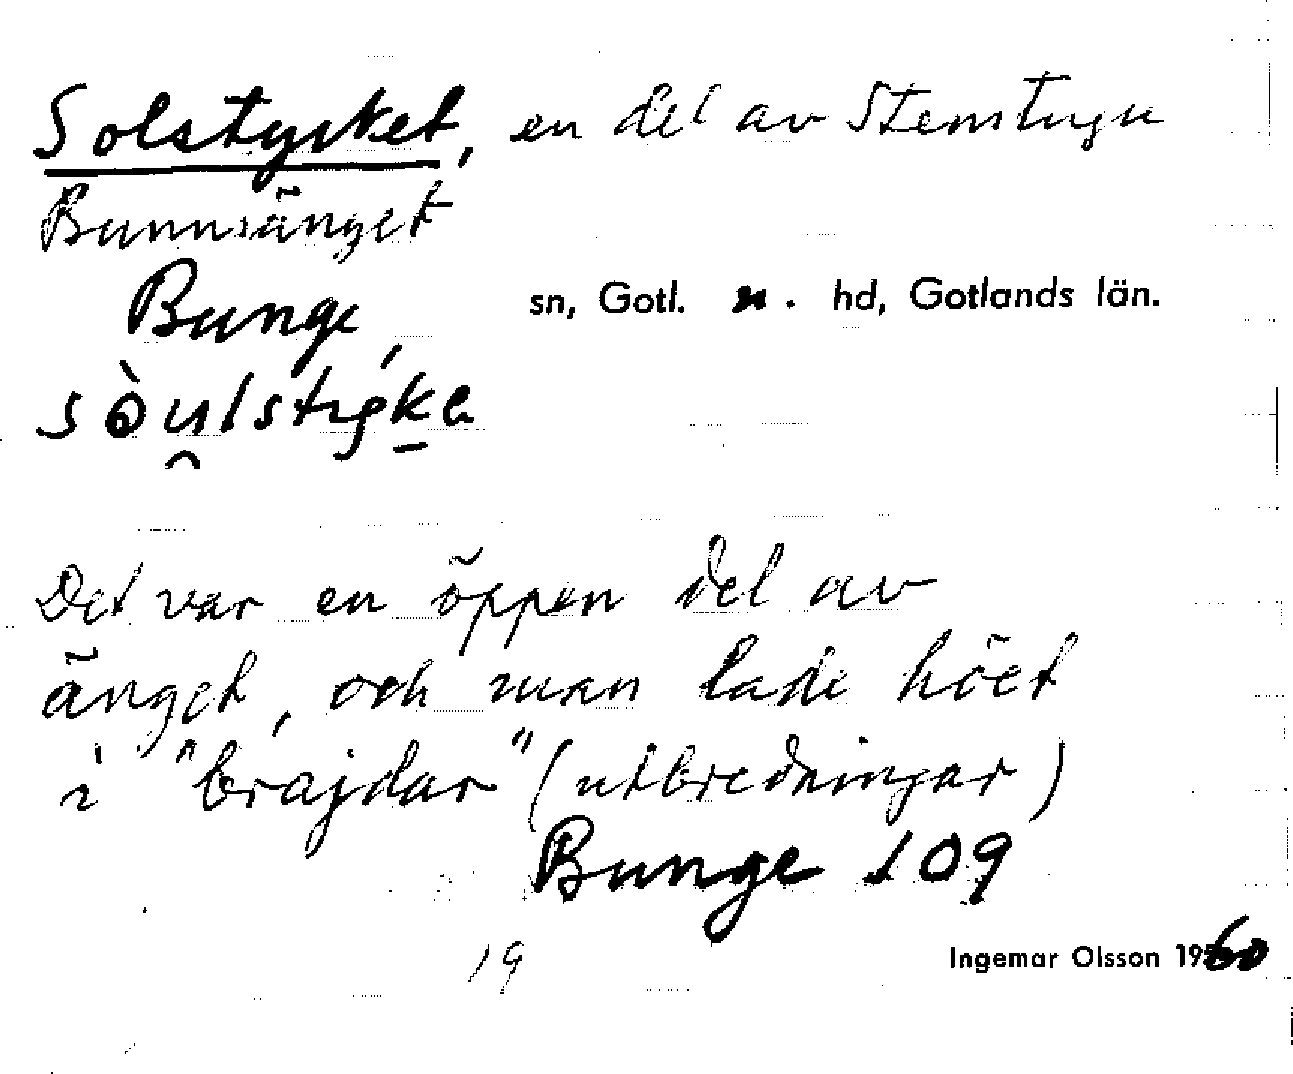 Solstycket, en del av Stenstugu
Bunnsänget
Bunge, sn, Gotl. n. hd, Gotlands län.
Det var en öppen del av
änget, och man lade höet
i "brajdar" (utbredningar)
Bunge 109
19
Ingemar Olsson 1960